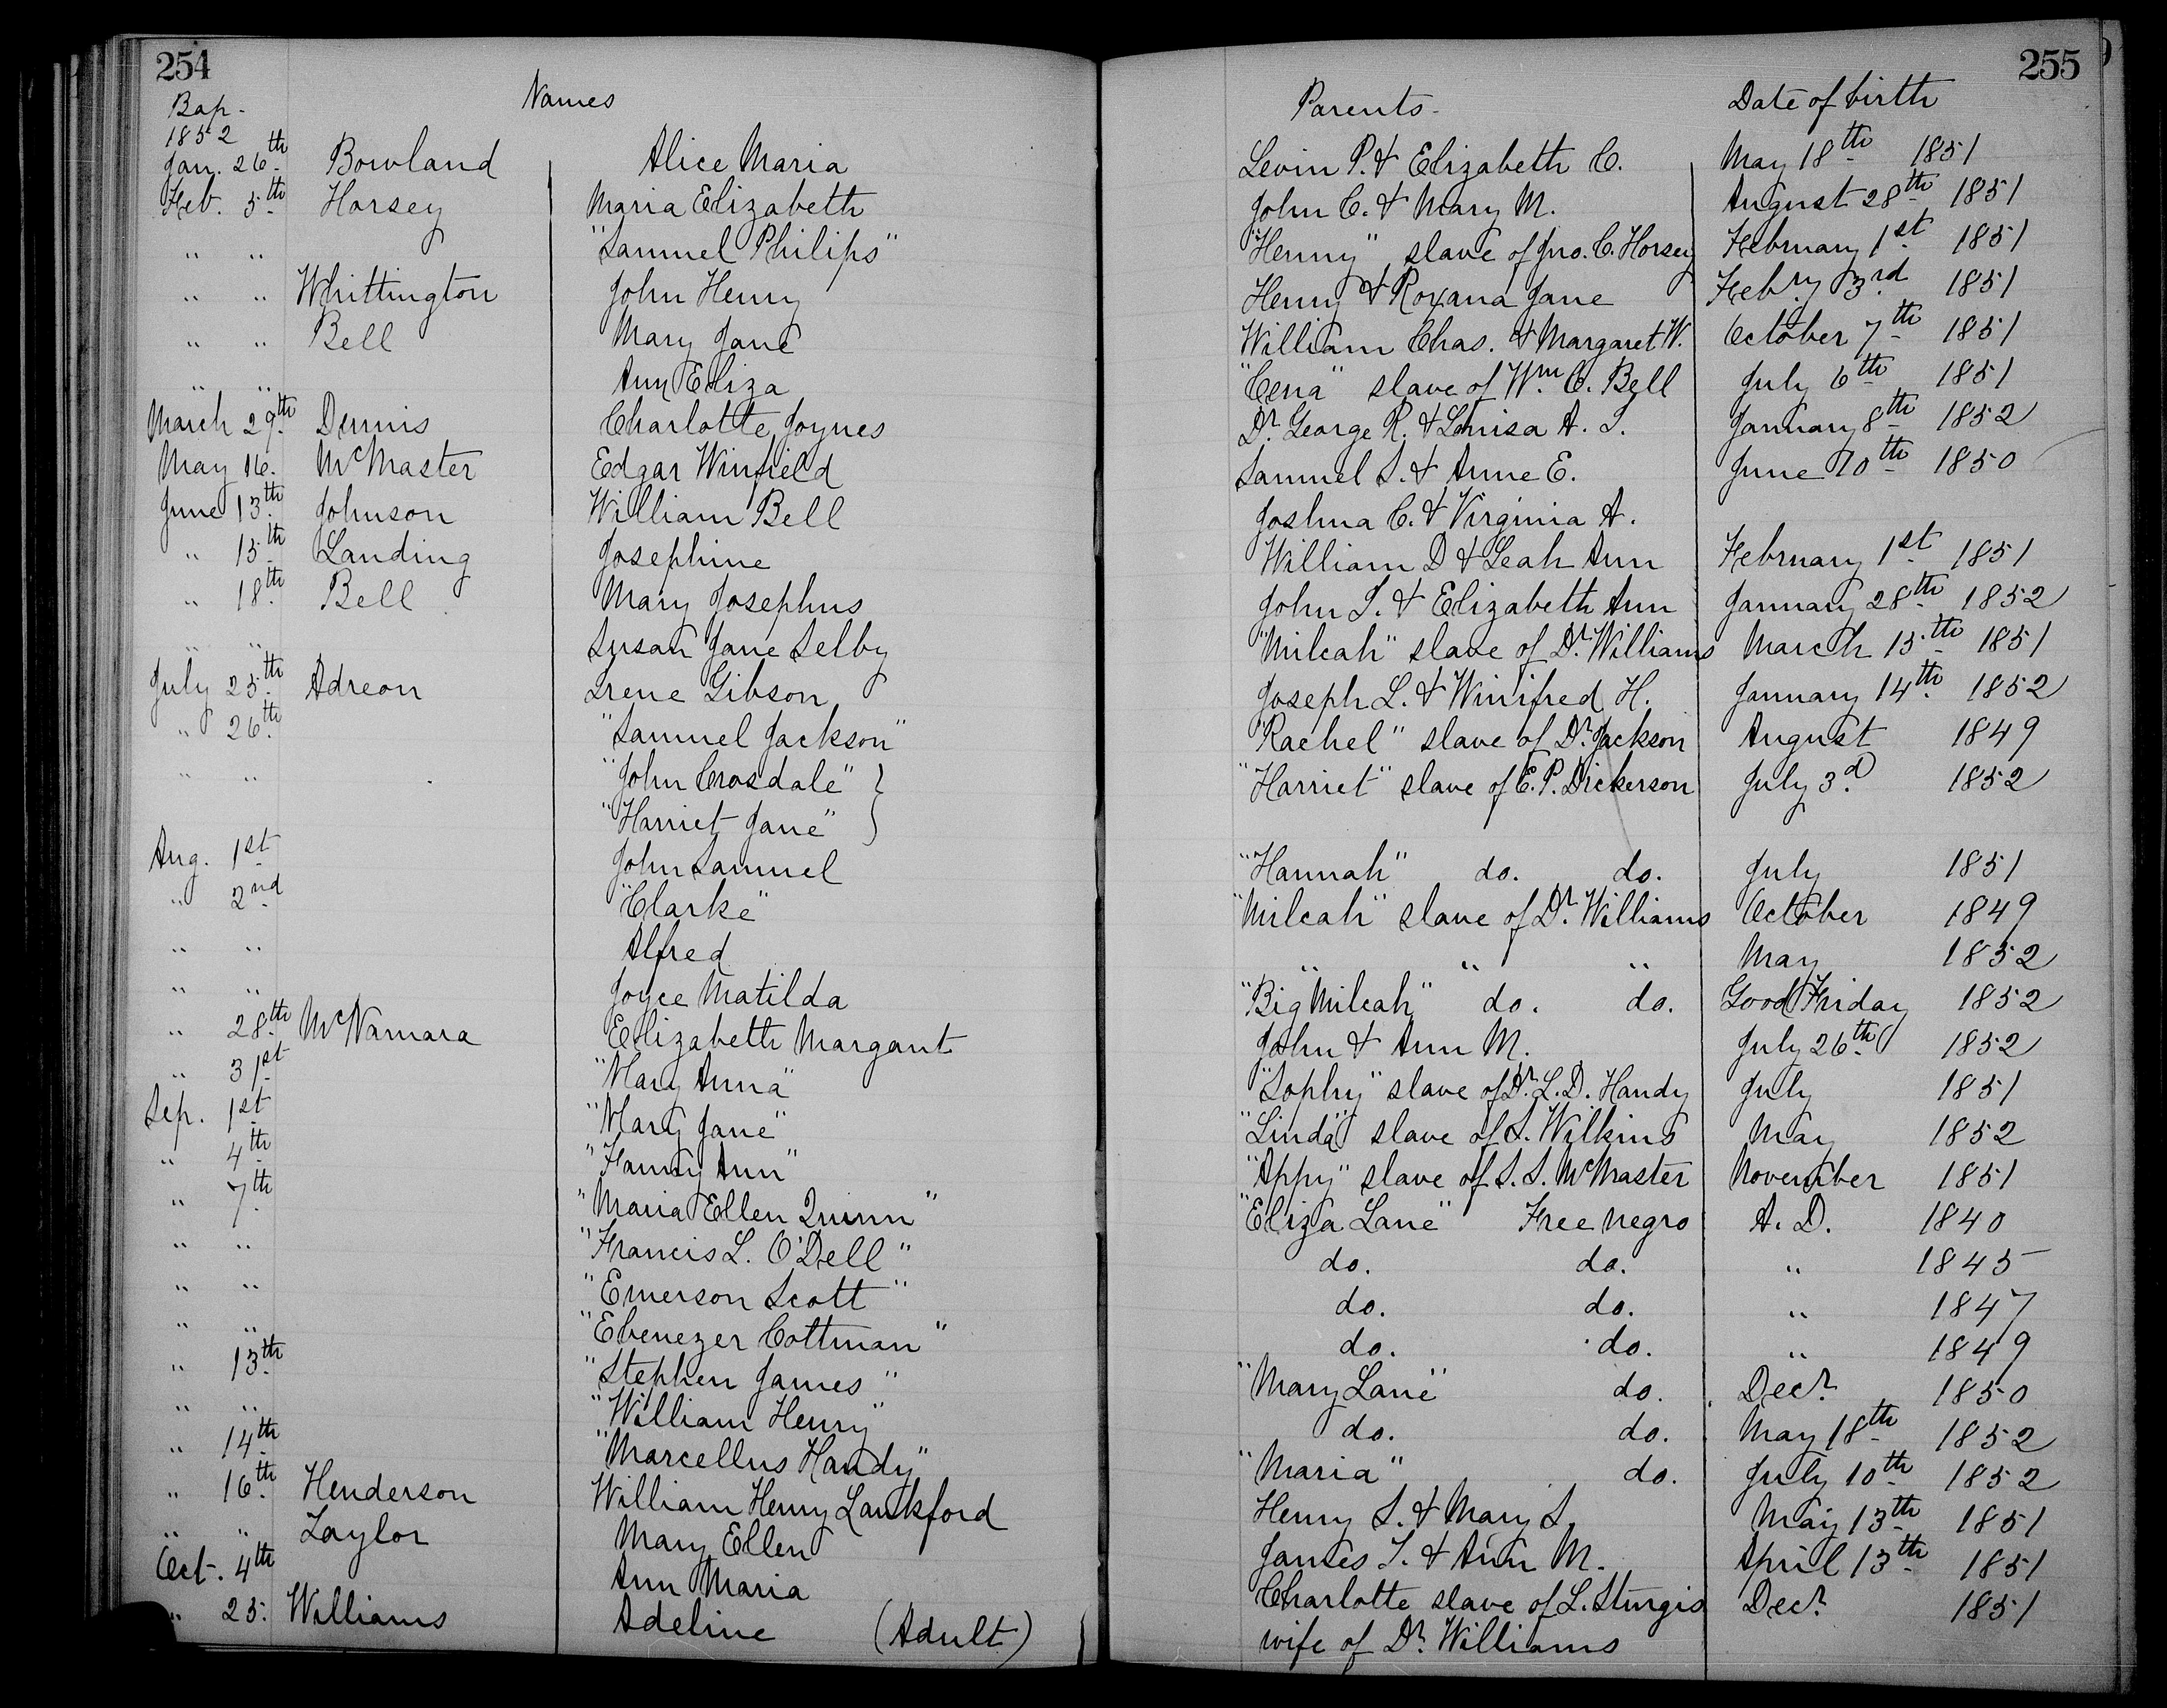 254 255
Bap- Names Parents- Date of birth
1852
Jan. 26th Bowland Alice Maria Levin P. & Elizabeth C. May 18th 1851
Feb. 5th Horsey Maria Elizabeth John C. & Mary M. August 28th 1851
" " "Samuel Philips" "Henny" slave of Jno. C. Horsey February 1st 1851
" " Whittington John Henry Henry & Roxana Jane Febry 3rd 1851
" " Bell Mary Jane William Chas. & Margaret W. October 7th 1851
" " Ann Eliza "Cena" slave of Wm C. Bell July 6th 1851
March 29th Dennis Charlotte Joynes Dr. George R. & Louisa A. J. January 8th 1852
May 16. McMaster Edgar Winfield Samuel S. & Anne E. June 10th 1850
June 13th Johnson William Bell Joshua C. & Virginia A.
" 15th Landing Josephine William D & Leah Ann February 1st 1851
" 18th Bell Mary Josephus John T. & Elizabeth Ann January 28th 1852
" " Susan Jane Selby "Mileah" slave of Dr. Williams March 15th 1851
July 25th Adreon Irene Gibson Joseph L. & Winifred H. January 14th 1852
" 26th "Samuel Jackson" "Rachel" slave of Dr. Jackson August 1849
" " "John Crosdale" } "Harriet" slave of E. P. Dickerson July 3d 1852
"Harriet Jane"
Aug. 1st John Samuel "Hannah" do. do. July 1851
" 2nd "Clarke" "Mileah" slave of Dr. Williams October 1849
" " Alfred " " " May 1852
" " Joyce Matilda "Big Mileah" do. do. Good Friday 1852
" 28th McNamara Elizabeth Margaret John & Ann M. July 26th 1852
" 31st "Mary Anna" "Sophy" slave of Dr. L. D. Handy July 1851
Sep. 1st "Mary Jane" "Linda" slave of S. Wilkins May 1852
" 4th "Fanny Ann" "Appy" slave of S. S. McMaster November 1851
" 7th "Maria Ellen Quinn" "Eliza Lane" Free negro A. D. 1840
" " "Francis L. O'Dell" do. do. " 1845
" " "Emerson Scott" do. do. " 1847
" " "Ebenezer Cottman" do. do. " 1849
" 13th "Stephen James" "Mary Lane" do. Decr. 1850
" " "William Henry" do. do. May 18th 1852
" 14th "Marcellus Handy" "Maria" do. July 10th 1852
" 16th Henderson William Henry Lankford Henry S. & Mary S. May 13th 1851
" " Taylor Mary Ellen James T. & Ann M. April 13th 1851
Oct. 4th Ann Maria Charlotte slave of L. Sturgis Decr. 1851
" 25. Williams Adeline (Adult) wife of Dr. Williams